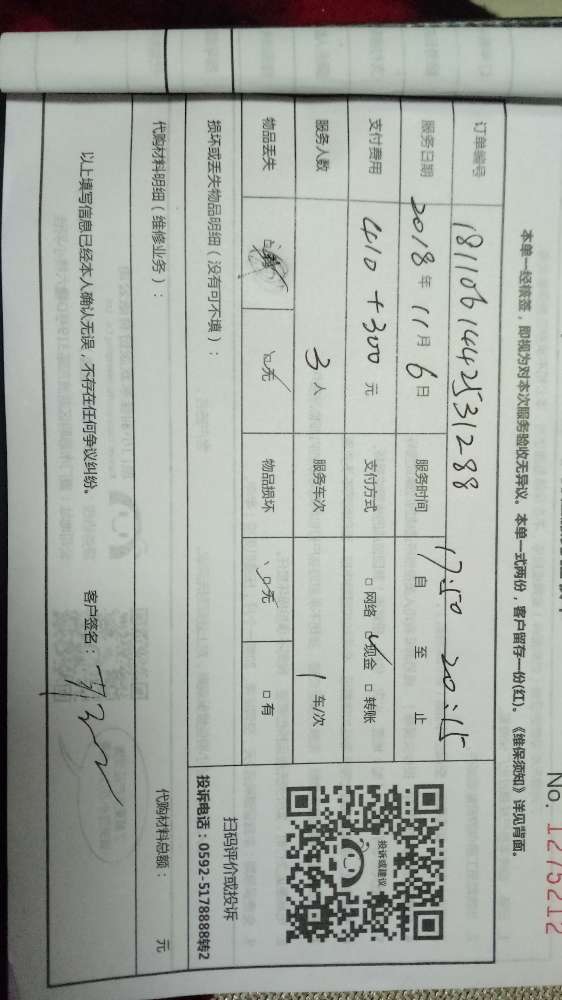 No. 1275212
本单一经核签，即视为对本次服务验收无异议。本单一式两份，客户留存一份(红)。《维保须知》详见背面。
订单编号 1811061442531288
服务日期 2018年11月6日 服务时间 自17:50至20:15止
支付费用 410+300元 支付方式 □网络 ☑现金 □转账
服务人数 3人 服务车次 1车/次
物品丢失 □无 物品损坏 □无 □有
损坏或丢失物品明细（没有可不填）：
投诉或建议
扫码评价或投诉
投诉电话：0592-5178888转2
代购材料明细（维修业务）： 代购材料总额： 元
以上填写信息已经本人确认无误，不存在任何争议纠纷。 客户签名：